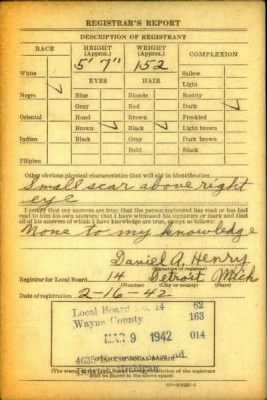 REGISTRAR'S REPORT
DESCRIPTION OF REGISTRANT
RACE HEIGHT (Approx.) WEIGHT (Approx.) COMPLEXION
5' 7" 152
White Sallow
EYES HAIR Light
Negro Blue Blonde Ruddy
Gray Red Dark
Oriental Hazel Brown Freckled
Brown Black Light brown
Indian Black Gray Dark brown
Bald Black
Filipino
Other obvious physical characteristics that will aid in identification
Small scar above right
eye
I certify that my answers are true; that the person registered has read or has had
read to him his own answers; that I have witnessed his signature or mark and that
all of his answers of which I have knowledge are true, except as follows:
None to my knowledge
Daniel A. Henry
(Signature of registrar)
Registrar for Local Board 14 Detroit Mich
(Number) (City or county) (State)
Date of registration 2-16-42
Local Board No. 14 62
Wayne County 163
MAR 9 1942 014
Michigan